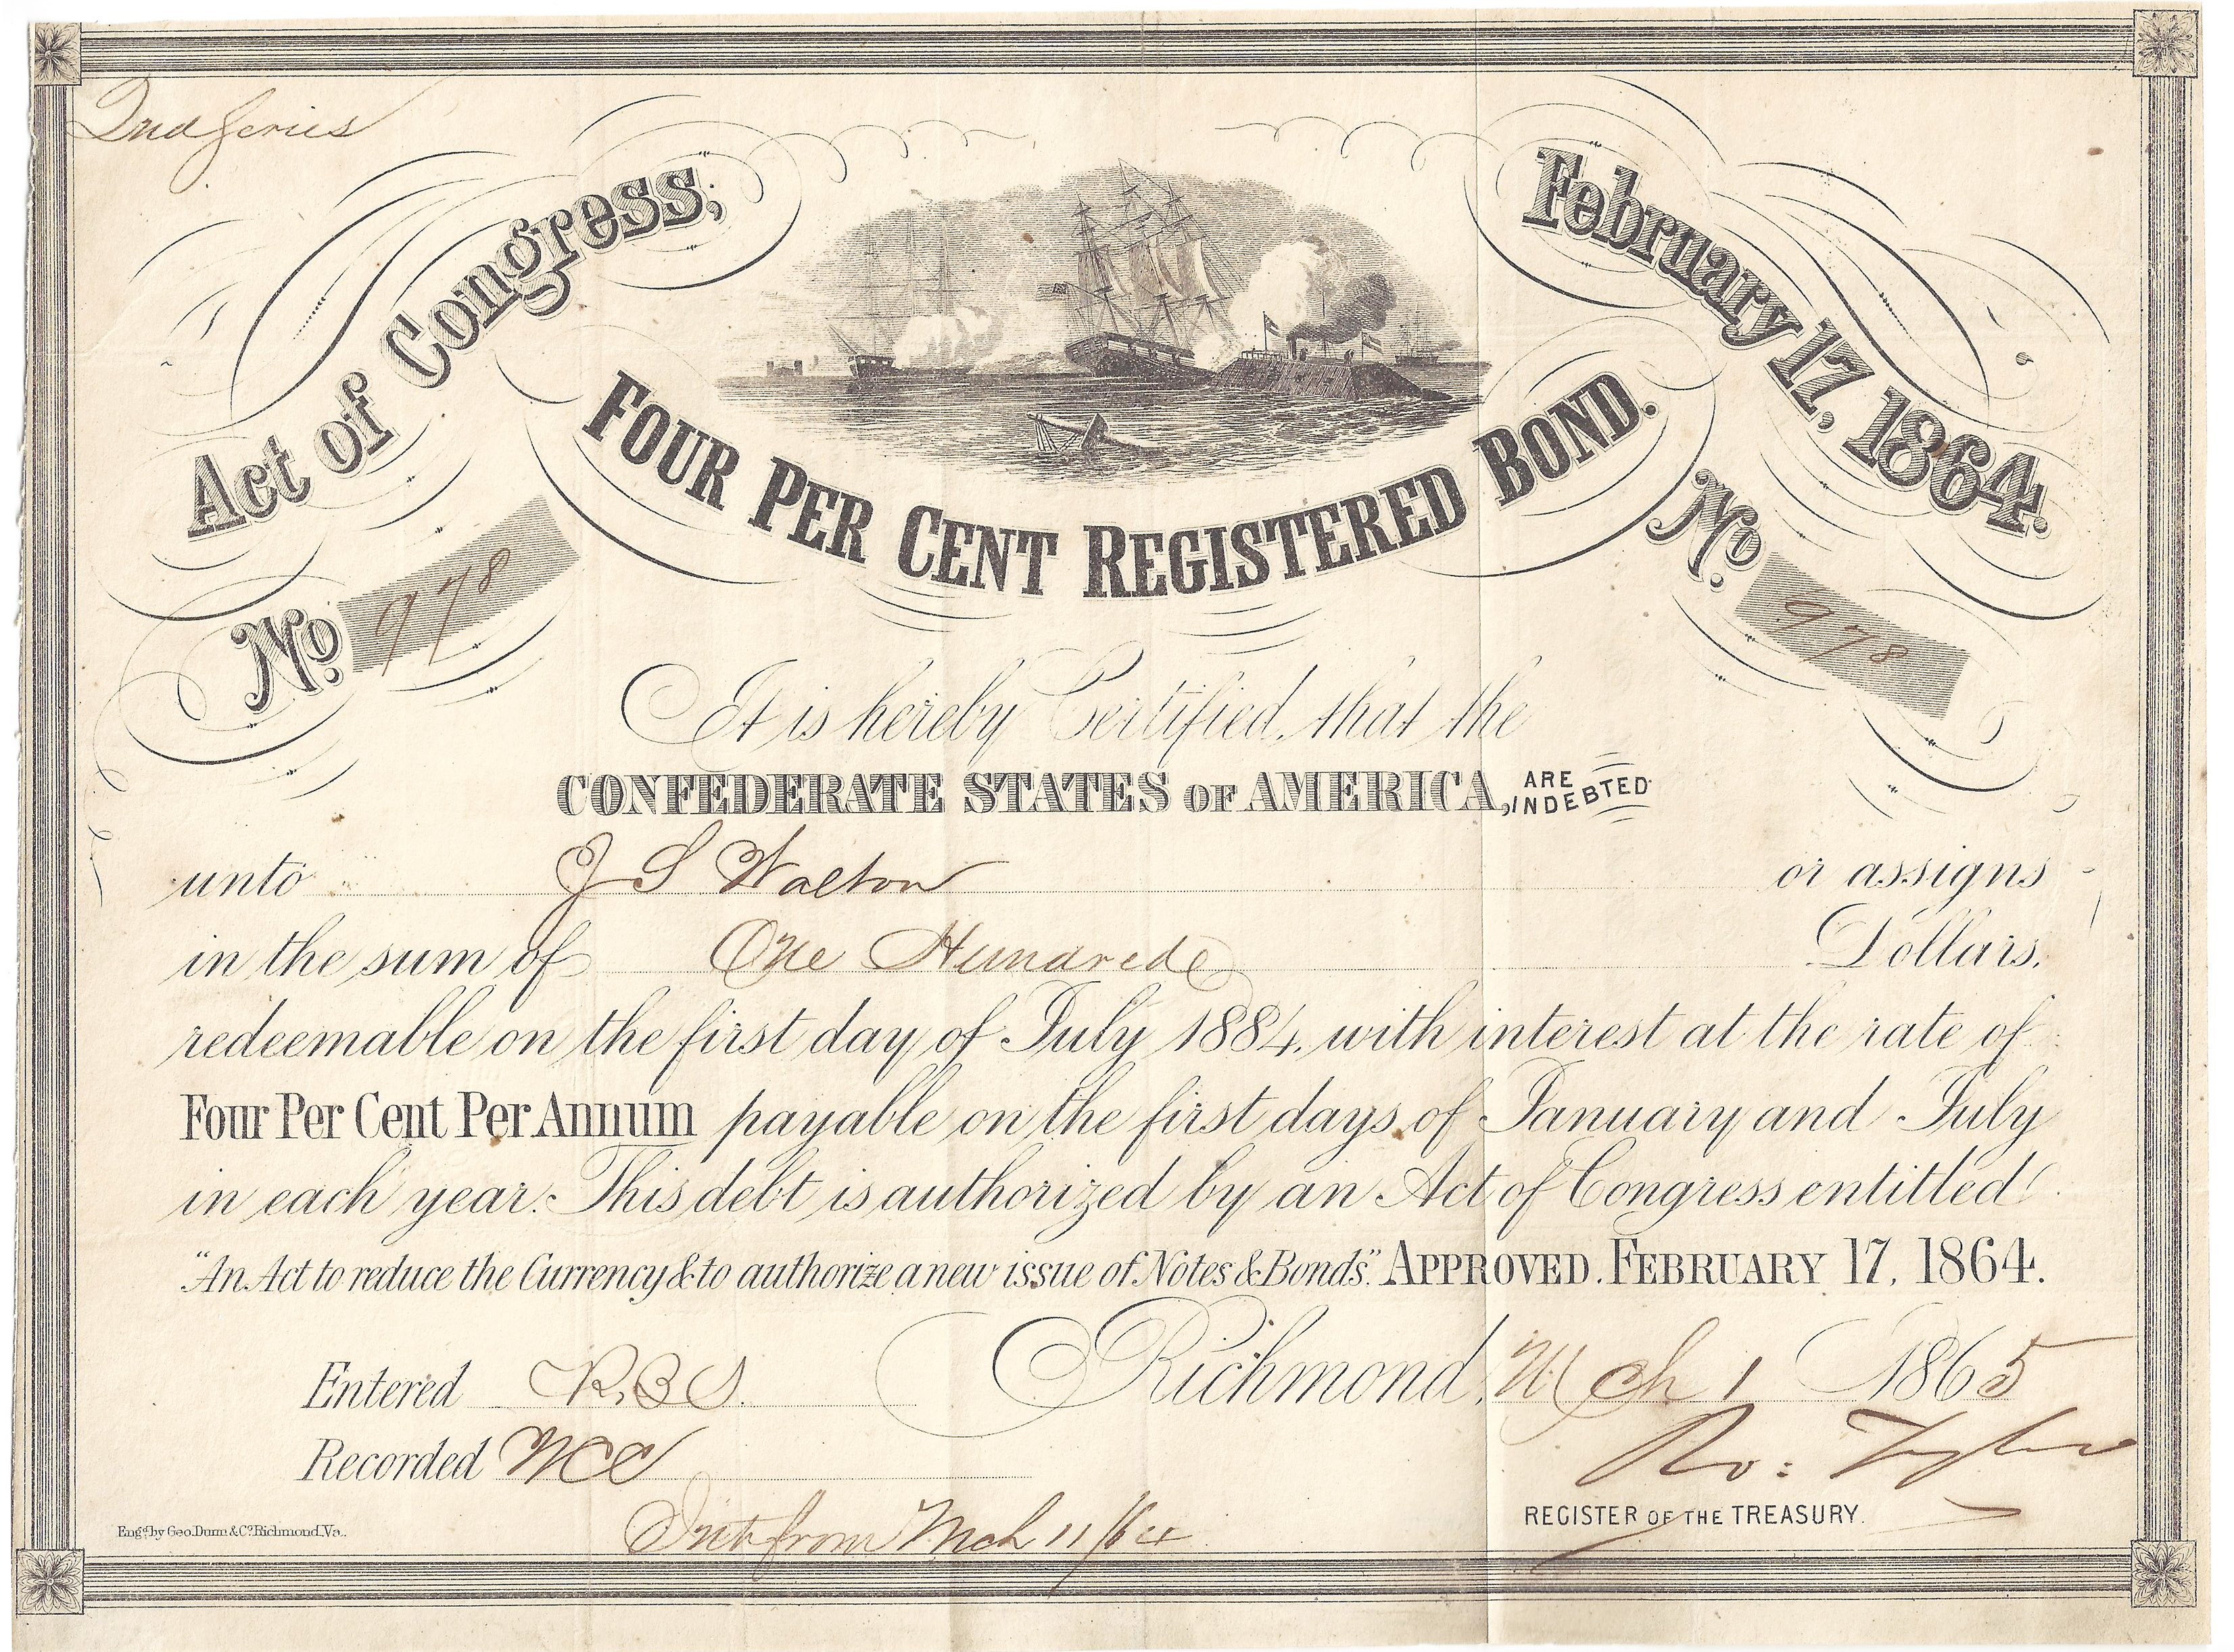 2nd Series
Act of Congress, February 17, 1864.
FOUR PER CENT REGISTERED BOND.
No. 978 No. 978
It is hereby Certified, that the
CONFEDERATE STATES OF AMERICA, ARE INDEBTED
unto J S Walton or assigns
in the sum of One Hundred Dollars.
redeemable on the first day of July 1884, with interest at the rate of
Four Per Cent Per Annum payable on the first days of January and July
in each year. This debt is authorized by an Act of Congress entitled
"An Act to reduce the Currency & to authorize a new issue of Notes & Bonds." APPROVED. FEBRUARY 17, 1864.
Entered R.B.S. Richmond, Mch 1 1865
Recorded WCC Ro: Tyler
REGISTER OF THE TREASURY.
Engd. by Geo. Dunn & Co. Richmond, Va.
Int from Mch 11/64